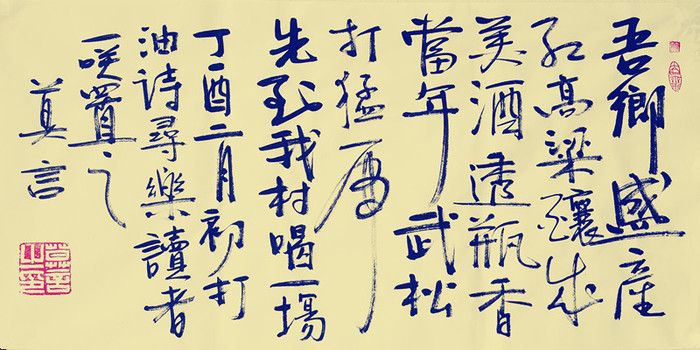 吾鄉盛産
紅高粱釀成
美酒透瓶香
當年武松
打猛虎
先到我村喝一場
丁酉二月初打
油詩尋樂讀者
一咲置之
莫言